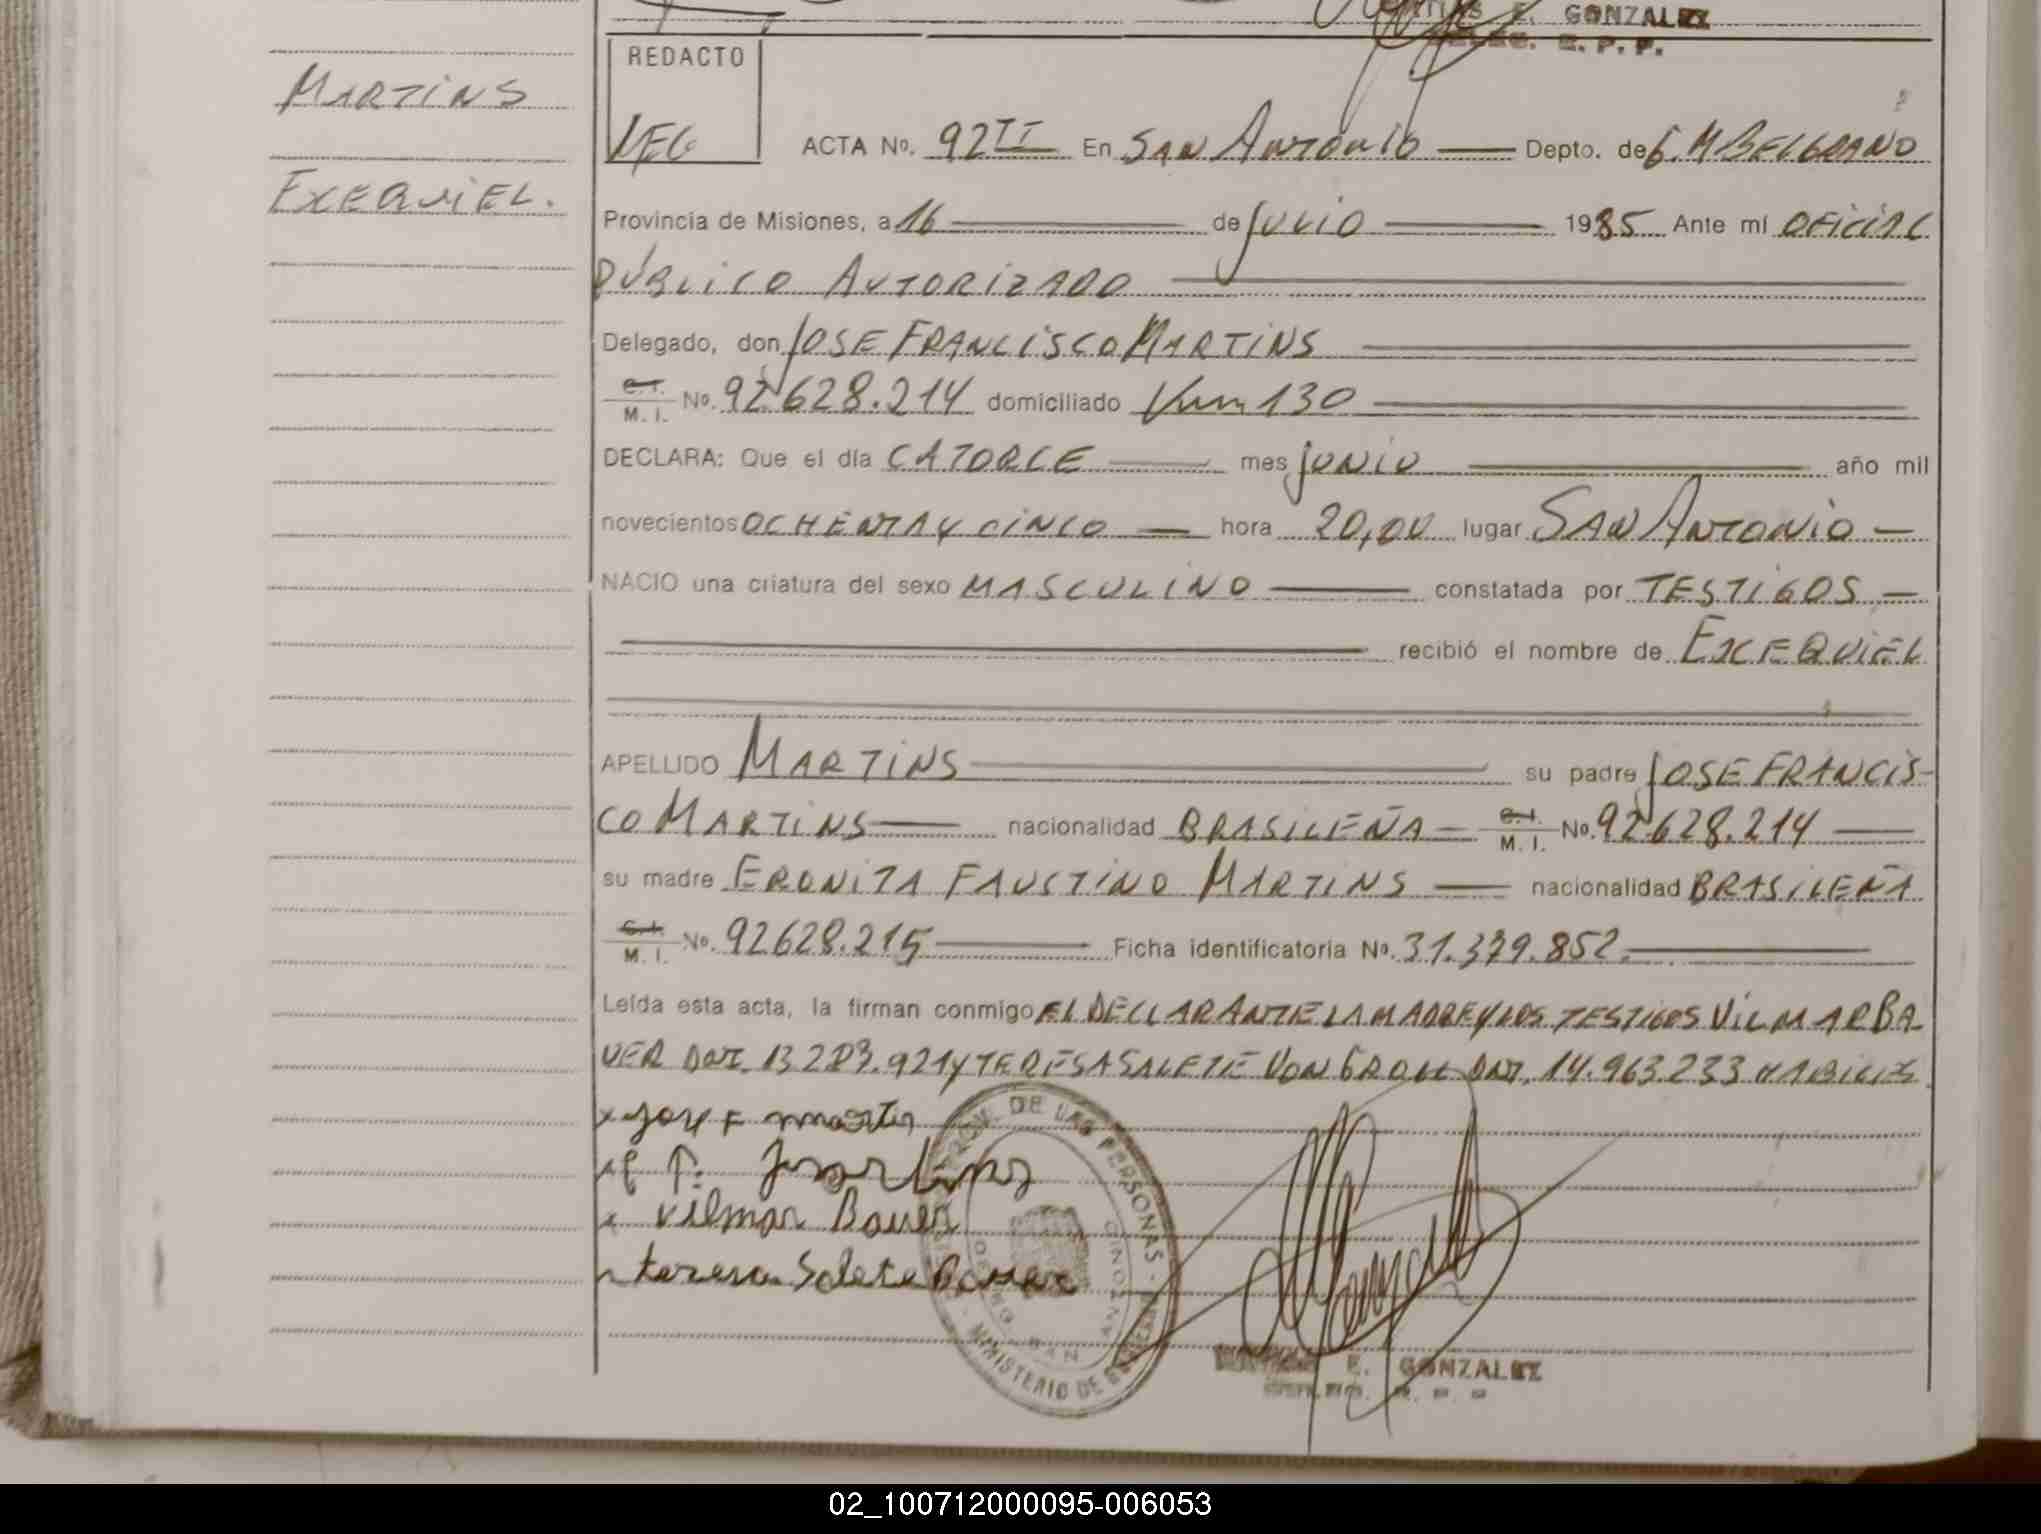 E. GONZALEZ
DELEG. R. P. P.
REDACTO
MARTINS
ACTA Nº. 92 II En SAN ANTONIO Depto. de G. M BELGRANO
EXEQUIEL.
Provincia de Misiones, a 16 de JULIO 1985 Ante mí OFICIAL
PÚBLICO AUTORIZADO
Delegado, don JOSE FRANCISCO MARTINS
C.I. M. I. Nº. 92.628.214 domiciliado Km 130
DECLARA: Que el día CATORCE mes JUNIO año mil
novecientos OCHENTA Y CINCO hora 20,00 lugar SAN ANTONIO
NACIO una criatura del sexo MASCULINO constatada por TESTIGOS
recibió el nombre de EXEQUIEL
APELLIDO MARTINS su padre JOSE FRANCIS-
CO MARTINS nacionalidad BRASILEÑA C.I. M. I. Nº. 92.628.214
su madre ERONITA FAUSTINO MARTINS nacionalidad BRASILEÑA
C.I. M. I. Nº. 92628.215 Ficha identificatoria Nº. 31.379.852.
Leída esta acta, la firman conmigo EL DECLARANTE LA MADRE Y LOS TESTIGOS VILMAR BA
UER DNI. 13.283.921 Y TERESA SALETE VON GROLL DNI. 14.963.233 HABILES
x Jose F martin
x E F. Martins
x Vilmar Bauer
x teresa Salete Bauer
PROV. DE LAS PERSONAS
MINISTERIO DE GOBIERNO
DELEG. SAN ANTONIO
E. GONZALEZ
02_100712000095-006053